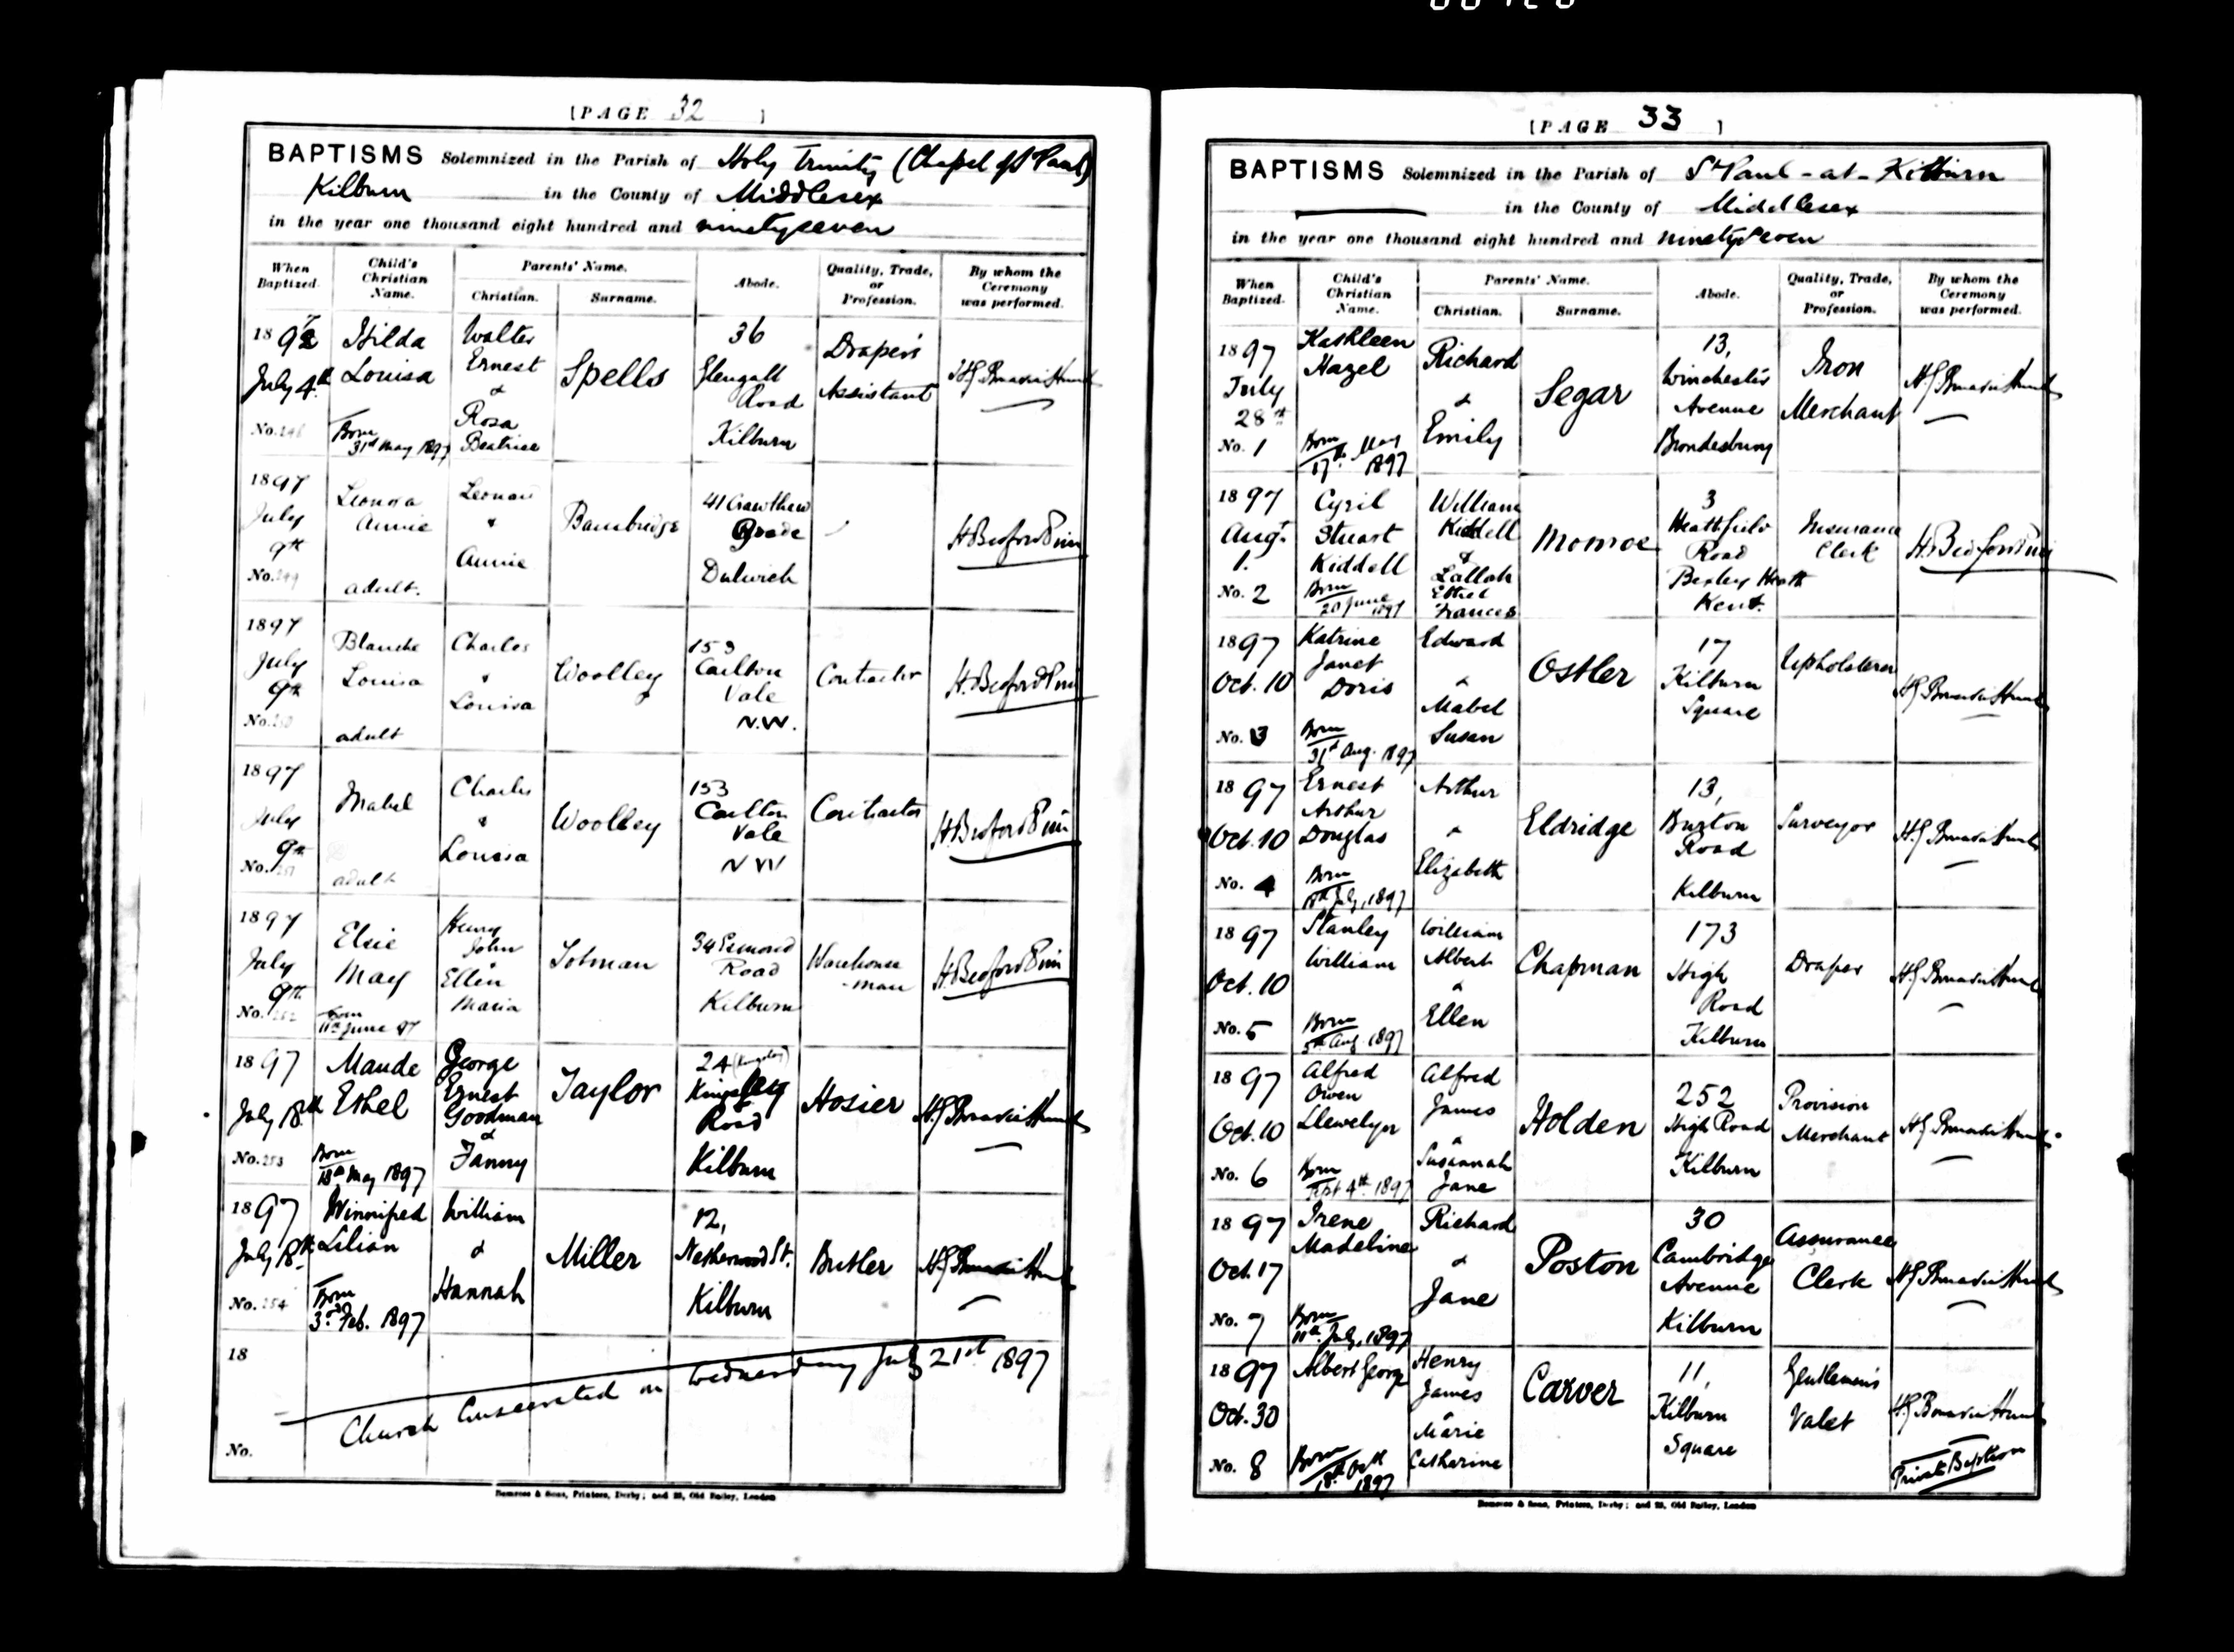 [PAGE 32 ]
BAPTISMS Solemnized in the Parish of Holy Trinity (Chapel of St Paul)
Kilburn in the County of Middlesex
in the year one thousand eight hundred and ninetyseven
When Baptized. Child's Christian Name. Parents' Name. Christian. Surname. Abode. Quality, Trade, or Profession. By whom the Ceremony was performed.
1897 July 4th No. 248 Hilda Louisa Born 31st May 1897 Walter Ernest & Rosa Beatrice Spells 36 Glengall Road Kilburn Draper's Assistant
1897 July 9th No. 249 Leonora Annie adult. & Annie Bambridge 41 Dulwich H. Bedford Pim
1897 July 9th No. 250 Blanche Louisa adult Charles & Louisa Woolley 153 Carlton Vale N.W. Contractor H. Bedford Pim
1897 July 9th No. 251 Mabel adult Charles & Louisa Woolley 153 Carlton Vale N W Contractor H. Bedford Pim
1897 July 9th No. 252 Elsie May Born 11th June 97 Henry John & Ellen Maria 34 Esmond Road Kilburn Warehouse-man H. Bedford Pim
1897 July 18th No. 253 Maude Ethel Born 18th May 1897 George Ernest Goodman & Fanny Taylor 24 (Kingsley) Kingsley Road Kilburn Hosier
1897 July 18th No. 254 Winnifred Lilian Born 3rd Feb. 1897 William & Hannah Miller 12, Netherwood St. Kilburn Butler
18 No.
Church Consecrated on Wednesday July 21st 1897
Bemrose & Sons, Printers, Derby; and 23, Old Bailey, London
[PAGE 33 ]
BAPTISMS Solemnized in the Parish of St Paul-at-Kilburn
in the County of Middlesex
in the year one thousand eight hundred and ninety seven
When Baptized. Child's Christian Name. Parents' Name. Christian. Surname. Abode. Quality, Trade, or Profession. By whom the Ceremony was performed.
1897 July 28th No. 1 Kathleen Hazel Born 17th May 1897 Richard & Emily Segar 13, Winchester Avenue Brondesbury Iron Merchant
1897 Augt. 1. No. 2 Cyril Stuart Kiddell Born 20 June 1897 William Kiddell & Lallah Ethel Frances Monroe 3 Heathfield Road Bexley Heath Kent. Insurance Clerk H. Bedford Pim
1897 Oct. 10 No. 3 Katrine Janet Doris Born 31st Aug. 1897 Edward & Mabel Susan Ostler 17 Kilburn Square Upholsterer
1897 Oct. 10 No. 4 Ernest Arthur Douglas Born 18th July, 1897 Arthur & Elizabeth Eldridge 13, Burton Road Kilburn Surveyor
1897 Oct. 10 No. 5 Stanley William Born 5th Aug 1897 William Albert & Ellen Chapman 173 High Road Kilburn Draper
1897 Oct. 10 No. 6 Alfred Owen Llewelyn Born Sept 4th 1897 Alfred James & Susannah Jane Holden 252 High Road Kilburn Provision Merchant
1897 Oct. 17 No. 7 Irene Madeline Born 11th July, 1897 Richard & Jane Poston 30 Cambridge Avenue Kilburn Assurance Clerk
1897 Oct. 30 No. 8 Albert George Born 18th Oct 1897 Henry James & Marie Catharine Carver 11, Kilburn Square Gentleman's Valet Private Baptism
Bemrose & Sons, Printers, Derby; and 23, Old Bailey, London